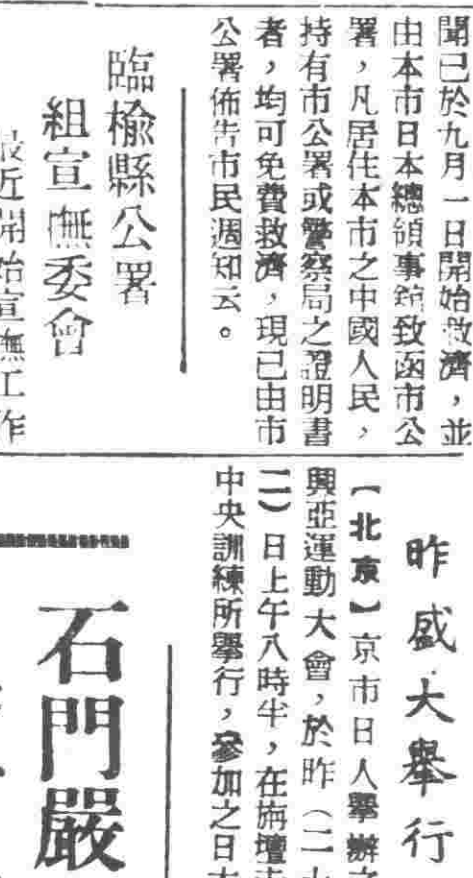 聞已於九月一日開始救濟，並
由本市日本總領事館致函市公
署，凡居住本市之中國人民，
持有市公署或警察局之證明書
者，均可免費救濟，現已由市
公署佈告市民週知云。
臨榆縣公署
組宣撫委會
最近開始宣撫工作
昨盛大舉行
【北京】京市日人舉辦之
興亞運動大會，於昨（二十
二）日上午八時半，在旃壇寺
中央訓練所舉行，參加之日本
石門嚴